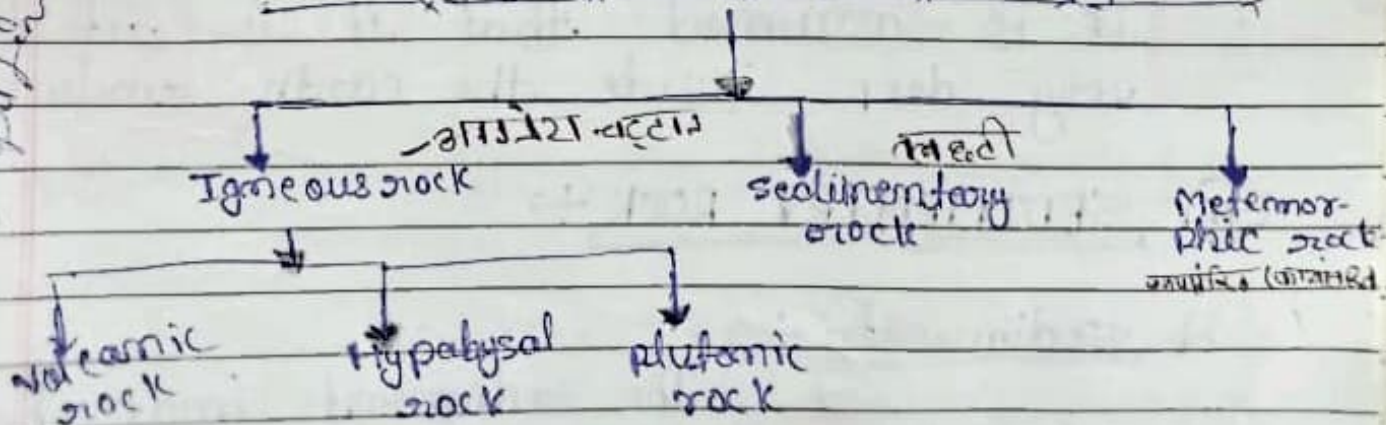 आग्नेय चट्टान
Igneous rock
तलछटी
Sedimentary
rock
Metemor-
phic rock
Volcanic
rock
Hypabysal
rock
plutonic
rock